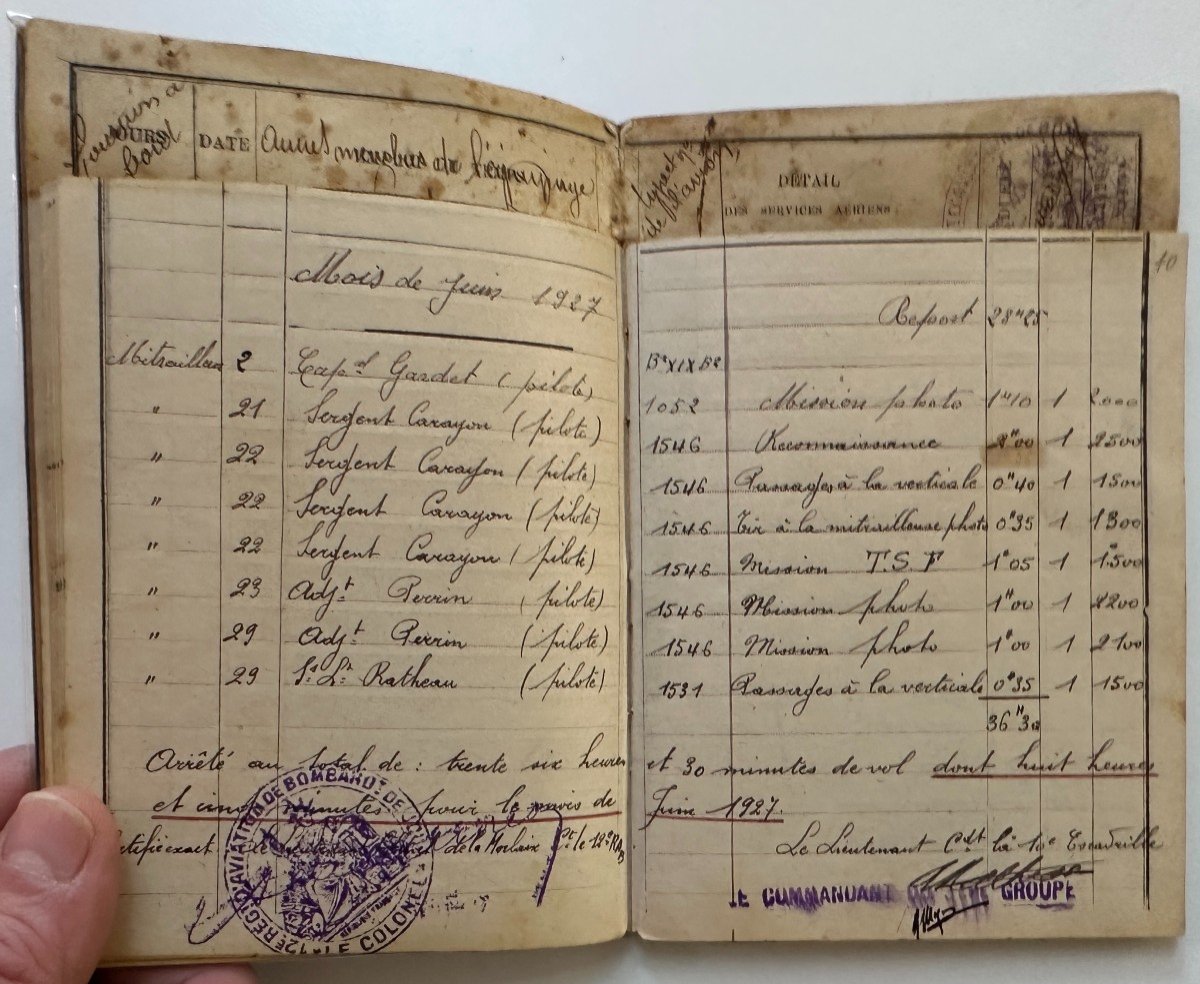 JOURS
DATE
Autres membres de l'équipage
de l'avion
DÉTAIL
DES SERVICES AÉRIENS
10
Mois de Juin 1927
Report 28ʰ25
Bᵉ XIX B²
Mitrailleur 2 Capⁿᵉˡ Gardet (pilote) 1052 Mission photo 1ʰ10 1 2000
" 21 Sergent Carayon (pilote) 1546 Reconnaissance 2ʰ00 1 2500
" 22 Sergent Carayon (pilote) 1546 Passages à la verticale 0ʰ40 1 1500
" 22 Sergent Carayon (pilote) 1546 Tir à la mitrailleuse photo 0ʰ35 1 1300
" 22 Sergent Carayon (pilote) 1546 Mission T.S.F 1ʰ05 1 1500
" 23 Adjᵗ Perrin (pilote) 1546 Mission photo 1ʰ00 1 2200
" 29 Adjᵗ Perrin (pilote) 1546 Mission photo 1ʰ00 1 2100
" 29 Sˢ Lᵗ Ratheau (pilote) 1531 Passages à la verticale 0ʰ35 1 1500
36ᴴ30
Arrêté au total de : trente six heures et 30 minutes de vol dont huit heures
et cinq minutes pour le mois de Juin 1927.
Certifié exact Le Lieutenant Cdt la 10e Escadrille
de la Cᵗ le 12ᵉ RAB
LE COMMANDANT GROUPE
12e RÉGᵗ D'AVIATION DE BOMBARDᵗ DE JOUR
LE COLONEL